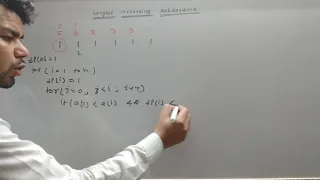 Longest Increasing Subsequence
1 1 1 1 1 1
2
dp[0]=1
for(i=1 to n)
dp[i]=1
for(j=0; j<i; j++)
if(a[j]<a[i] && dp[i] <